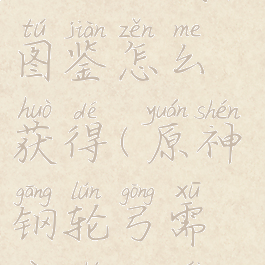 tú jiàn zěn me
图鉴怎么
huò dé yuán shén
获得(原神
gāng lún gōng xū
钢轮弓需